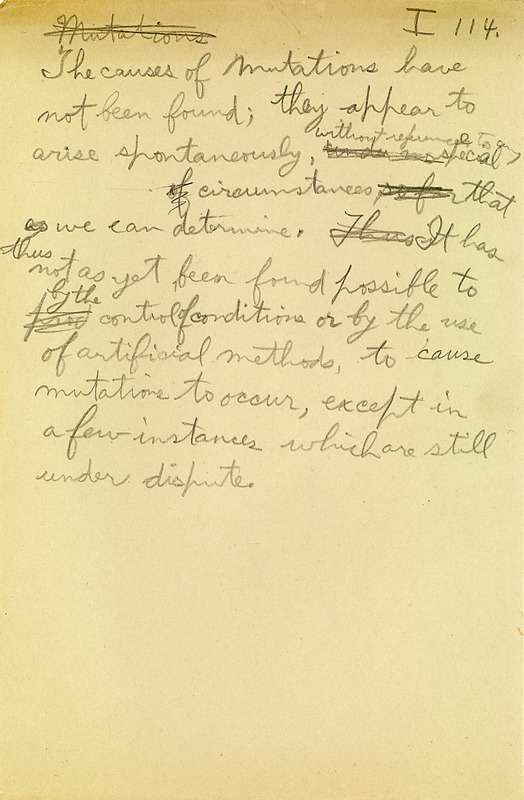 Mutations
I 114.
The causes of Mutations have
not been found; they appear to
without reference to any
arise spontaneously, under no special
of circumstances, so far that
as we can determine. Thus It has
thus
not as yet been found possible to
by the
control of conditions or by the use
of artificial methods, to cause
mutations to occur, except in
a few instances which are still
under dispute.